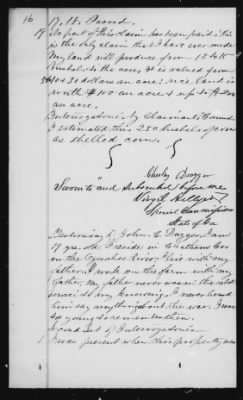 16
17. 18. Passed.
19 No part of this claim has been paid. This
is the only claim that I have ever made
My land will produce from 12 to 15
bushels to the acre, & is valued from
to 20 dollars an acre: rice land is
worth $100 an acre & up to
an acre.
Interrogatories by Claimant's Counsel
I estimated this 250 bushels of corn
as shelled corn.
Sworn to and subscribed before me
Virgil Hillyer
Special Commissioner
State of Ga
Testimony of John C. Dugger, I am
19 yrs old, I reside in Chatham Co
on the Ogeechee River, I live with my
father & work on the farm with my
father, my father never was in the rebel
service to my knowing, I never heard
him say anything about the war. I was
so young to remember then.
Second Set of Interrogatories
1 I was present when this property was